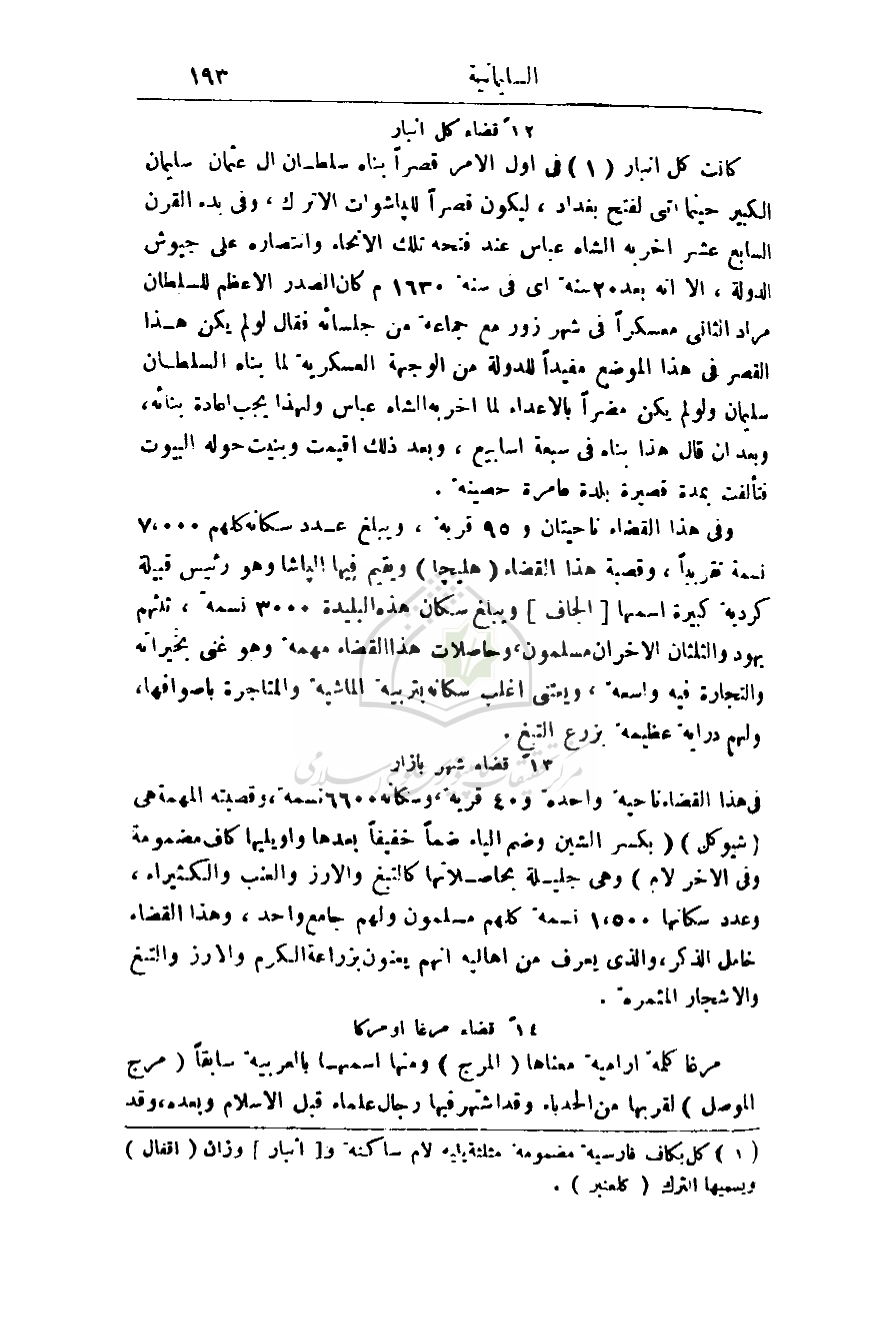 السليمانية ١٩٣
١٢ً قضاء كل انبار
كانت كل انبار ( ١ ) فى اول الامر قصراً بناه سلطان ال عثمان سليمان
الكبير حينما اتى لفتح بغداد ، ليكون قصراً للباشوات الاترك ، وفى بدء القرن
السابع عشر اخربه الشاه عباس عند فتحه تلك الانحاء وانتصاره على جيوش
الدولة ، الا انه بعد ٢٠ سنة اى فى سنة ١٦٣٠ م كان الصدر الاعظم للسلطان
مراد الثانى معسكراً فى شهر زور مع جماعة من جلسائه فقال لو لم يكن هذا
القصر فى هذا الموضع مفيداً للدولة من الوجهة العسكرية لما بناه السلطان
سليمان ولو لم يكن مضراً بالاعداء لما اخربه الشاه عباس ولهذا يجب اعادة بنائه،
وبعد ان قال هذا بناه فى سبعة اسابيع ، وبعد ذلك اقيمت وبنيت حوله البيوت
فتألفت بمدة قصيرة بلدة عامرة حصينة .
وفى هذا القضاء ناحيتان و ٩٥ قرية ، ويبلغ عدد سكانه كلهم ٧،٠٠٠
نسمة تقريباً ، وقصبة هذا القضاء ( هليچا ) ويقيم فيها الپاشا وهو رئيس قبيلة
كردية كبيرة اسمها [ الجاف ] ويبلغ سكان هذه البليدة ٣٠٠٠ نسمة ، ثلثهم
يهود والثلثان الاخران مسلمون، وحاصلات هذا القضاء مهمة وهو غنى بخيراته
والتجارة فيه واسعة ، ويعتنى اغلب سكانه بتربية الماشية والمتاجرة باصوافها،
ولهم دراية عظيمة بزرع التبغ .
١٣ً قضاء شهر بازار
فى هذا القضاء ناحية واحدة و ٤٠ قرية، وسكانه ٦٦٠٠ نسمة، وقصبته المهمة هى
( شيوكل ) ( بكسر الشين وضم الياء ضماً خفيفاً بعدها واو يليها كاف مضمومة
وفى الاخر لام ) وهى جليلة بحاصلاتها كالتبغ والارز والعنب والكثيراء ،
وعدد سكانها ١،٥٠٠ نسمة كلهم مسلمون ولهم جامع واحد ، وهذا القضاء
خامل الذكر، والذى يعرف من اهاليه انهم يعنون بزراعة الكرم والارز والتبغ
والاشجار المثمرة .
١٤ً قضاء مرغا او مركا
مرغا كلمة ارامية معناها ( المرج ) ومنها اسمها بالعربية سابقاً ( مرج
الموصل ) لقربها من الحدباء وقد اشتهر فيها رجال علماء قبل الاسلام وبعده، وقد
( ١ ) كل بكاف فارسية مضمومة مثلثة يليه لام ساكنة و[ انبار ] وزان ( اقفال )
ويسميها الترك ( كلعنبر ) .
مركز تحقيقات كامپيوترى علوم اسلامى